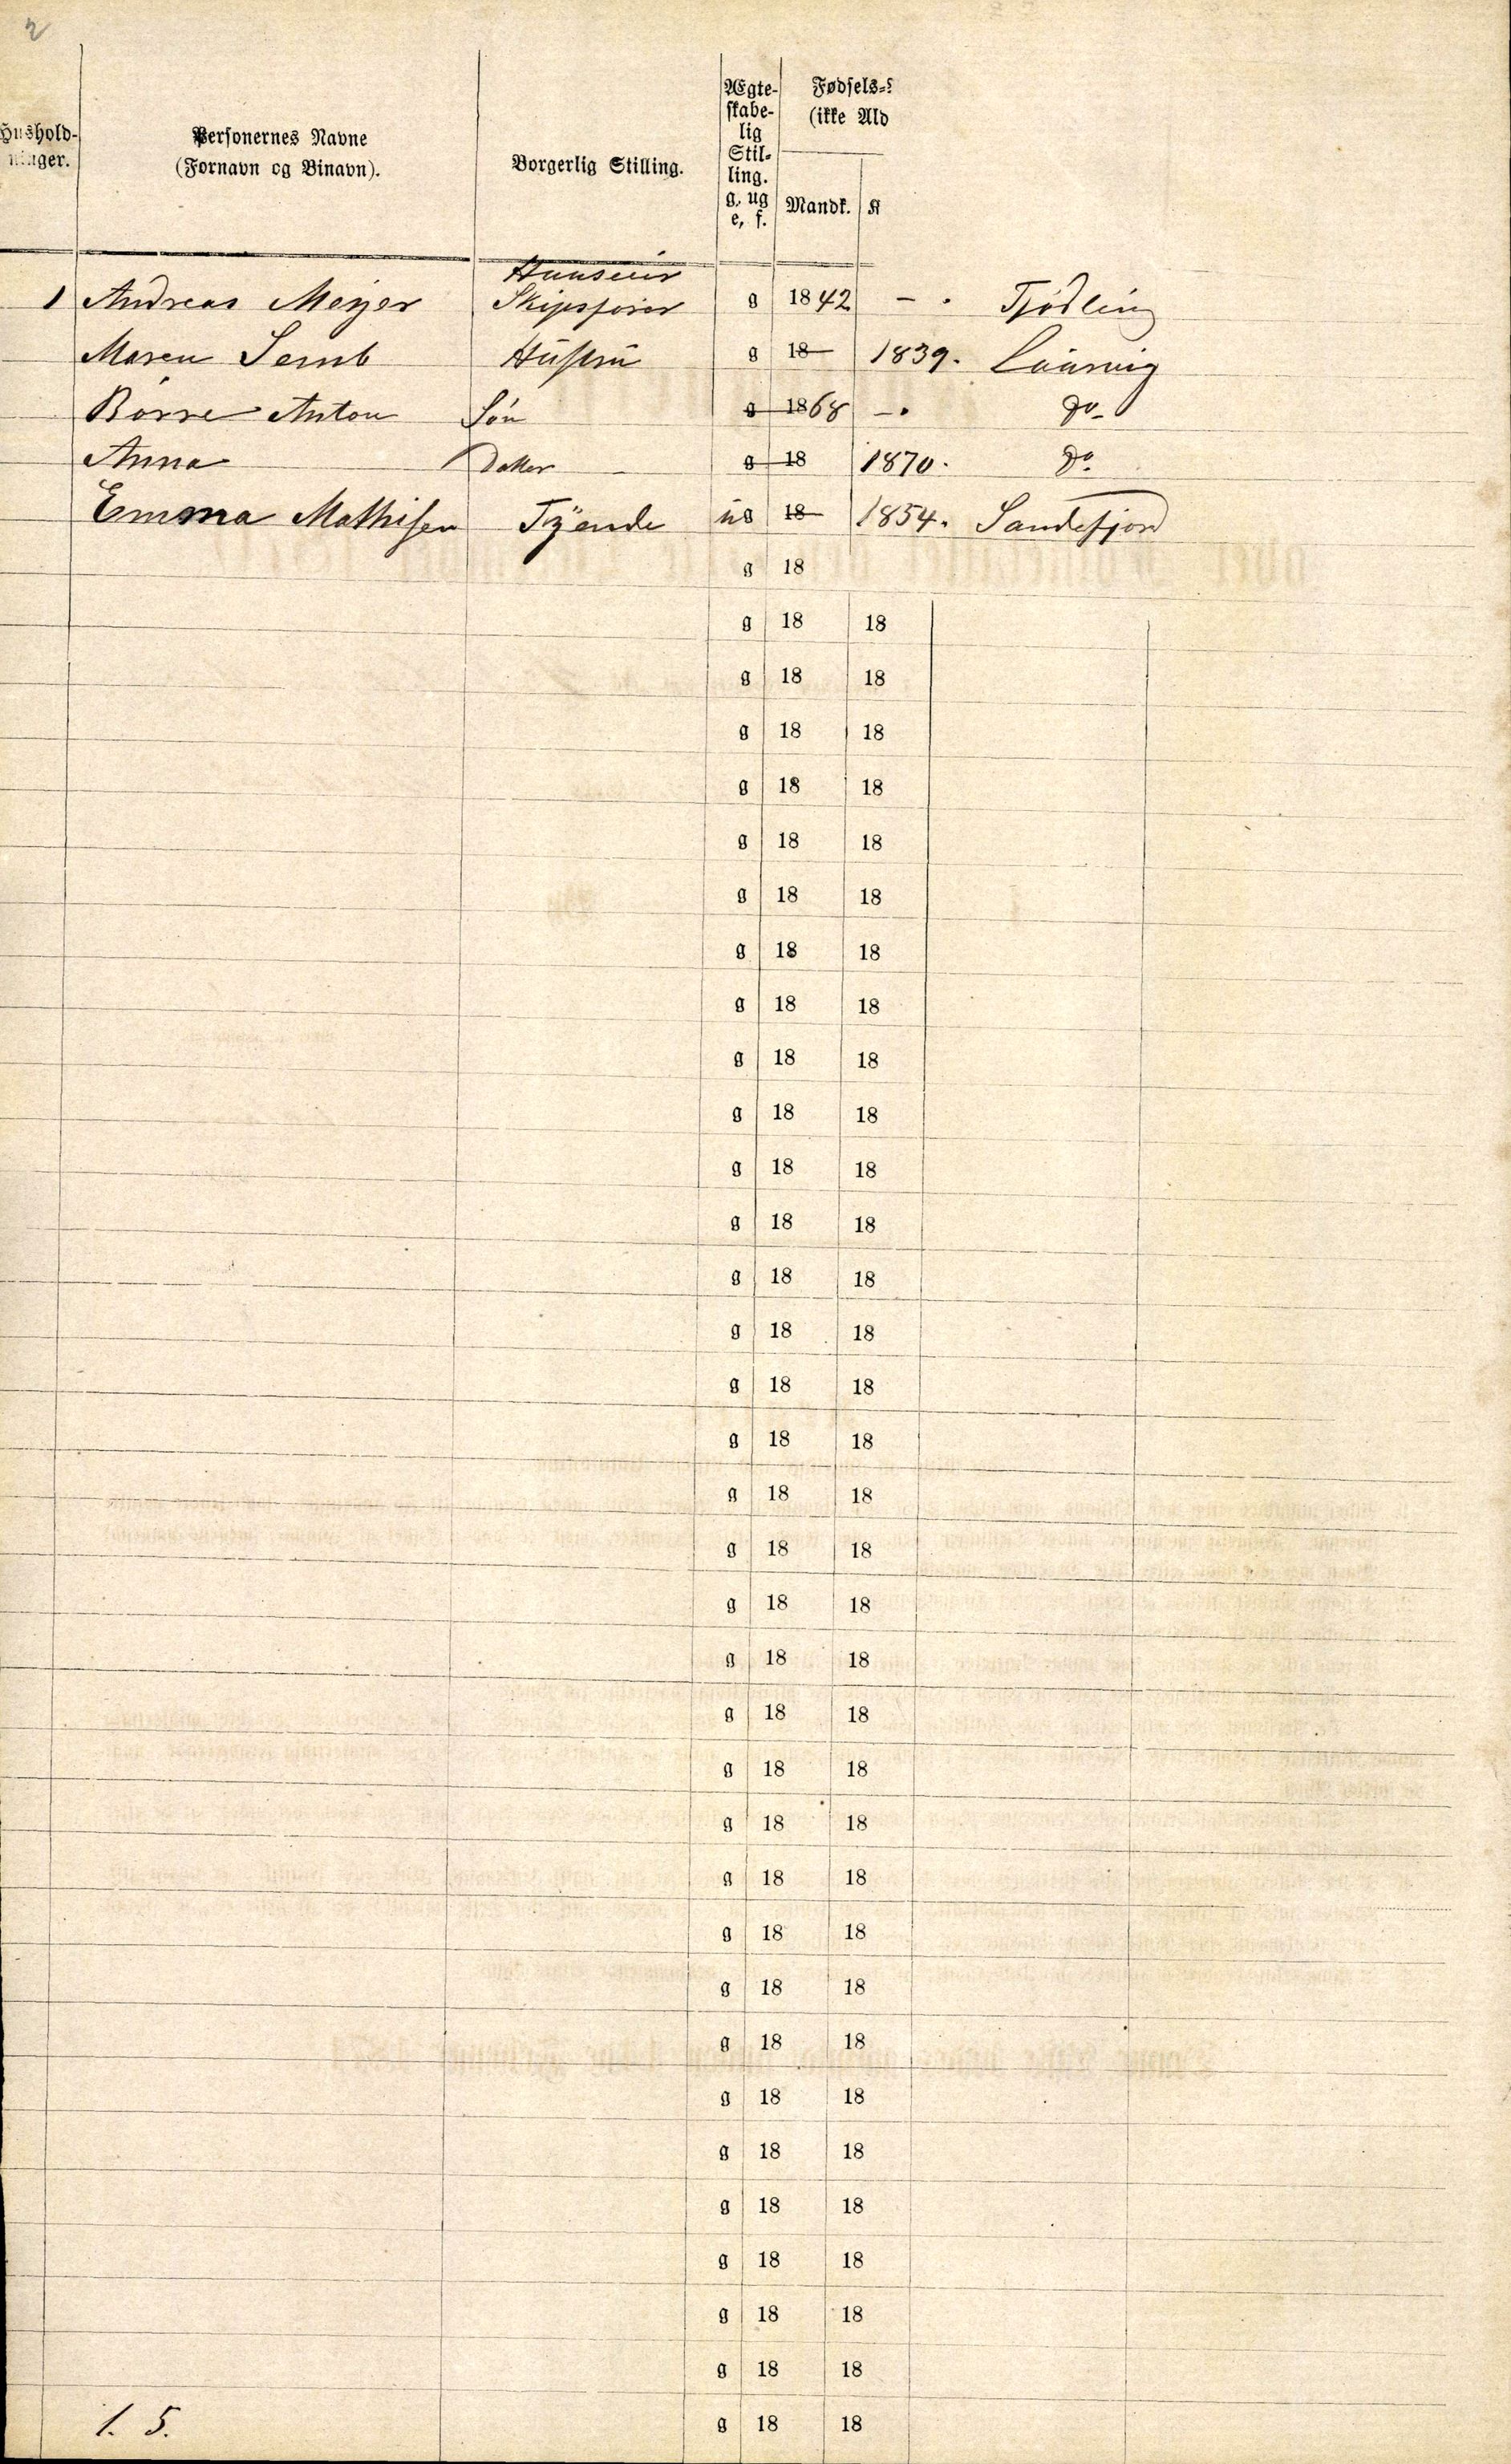 2
Hushold-
ninger.
Personernes Navne
(Fornavn og Binavn).
Borgerlig Stilling.
Ægte-
skabe-
lig
Stil-
ling.
g, ug
e, f.
Fødsels-
(ikke Ald
Mandk.
1 Andreas Meyer Huuseier Skipsfører g 1842 - . Tjødling
Maren Semb Hustru g 18 1839. Laurvig
Børre Anton Søn g 1868 - . Do
Anna Datter g 18 1870. Do
Emma Mathisen Tyende ug 18 1854. Sandefjord
g 18
g 18 18
g 18 18
g 18 18
g 18 18
g 18 18
g 18 18
g 18 18
g 18 18
g 18 18
g 18 18
g 18 18
g 18 18
g 18 18
g 18 18
g 18 18
g 18 18
g 18 18
g 18 18
g 18 18
g 18 18
g 18 18
g 18 18
g 18 18
g 18 18
g 18 18
g 18 18
g 18 18
g 18 18
g 18 18
g 18 18
g 18 18
g 18 18
g 18 18
1. 5. g 18 18